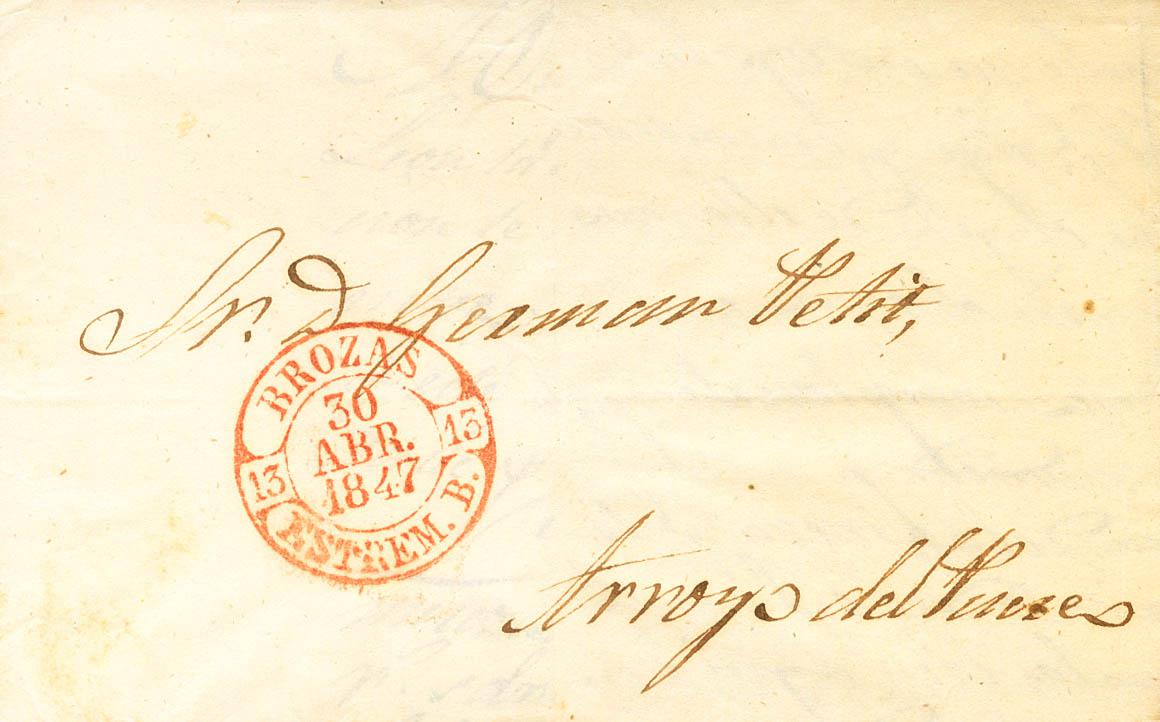 Sr. D German Petit,
BROZAS
13 30 13
ABR.
1847
ESTREM. B.
Arroyo del Puerco